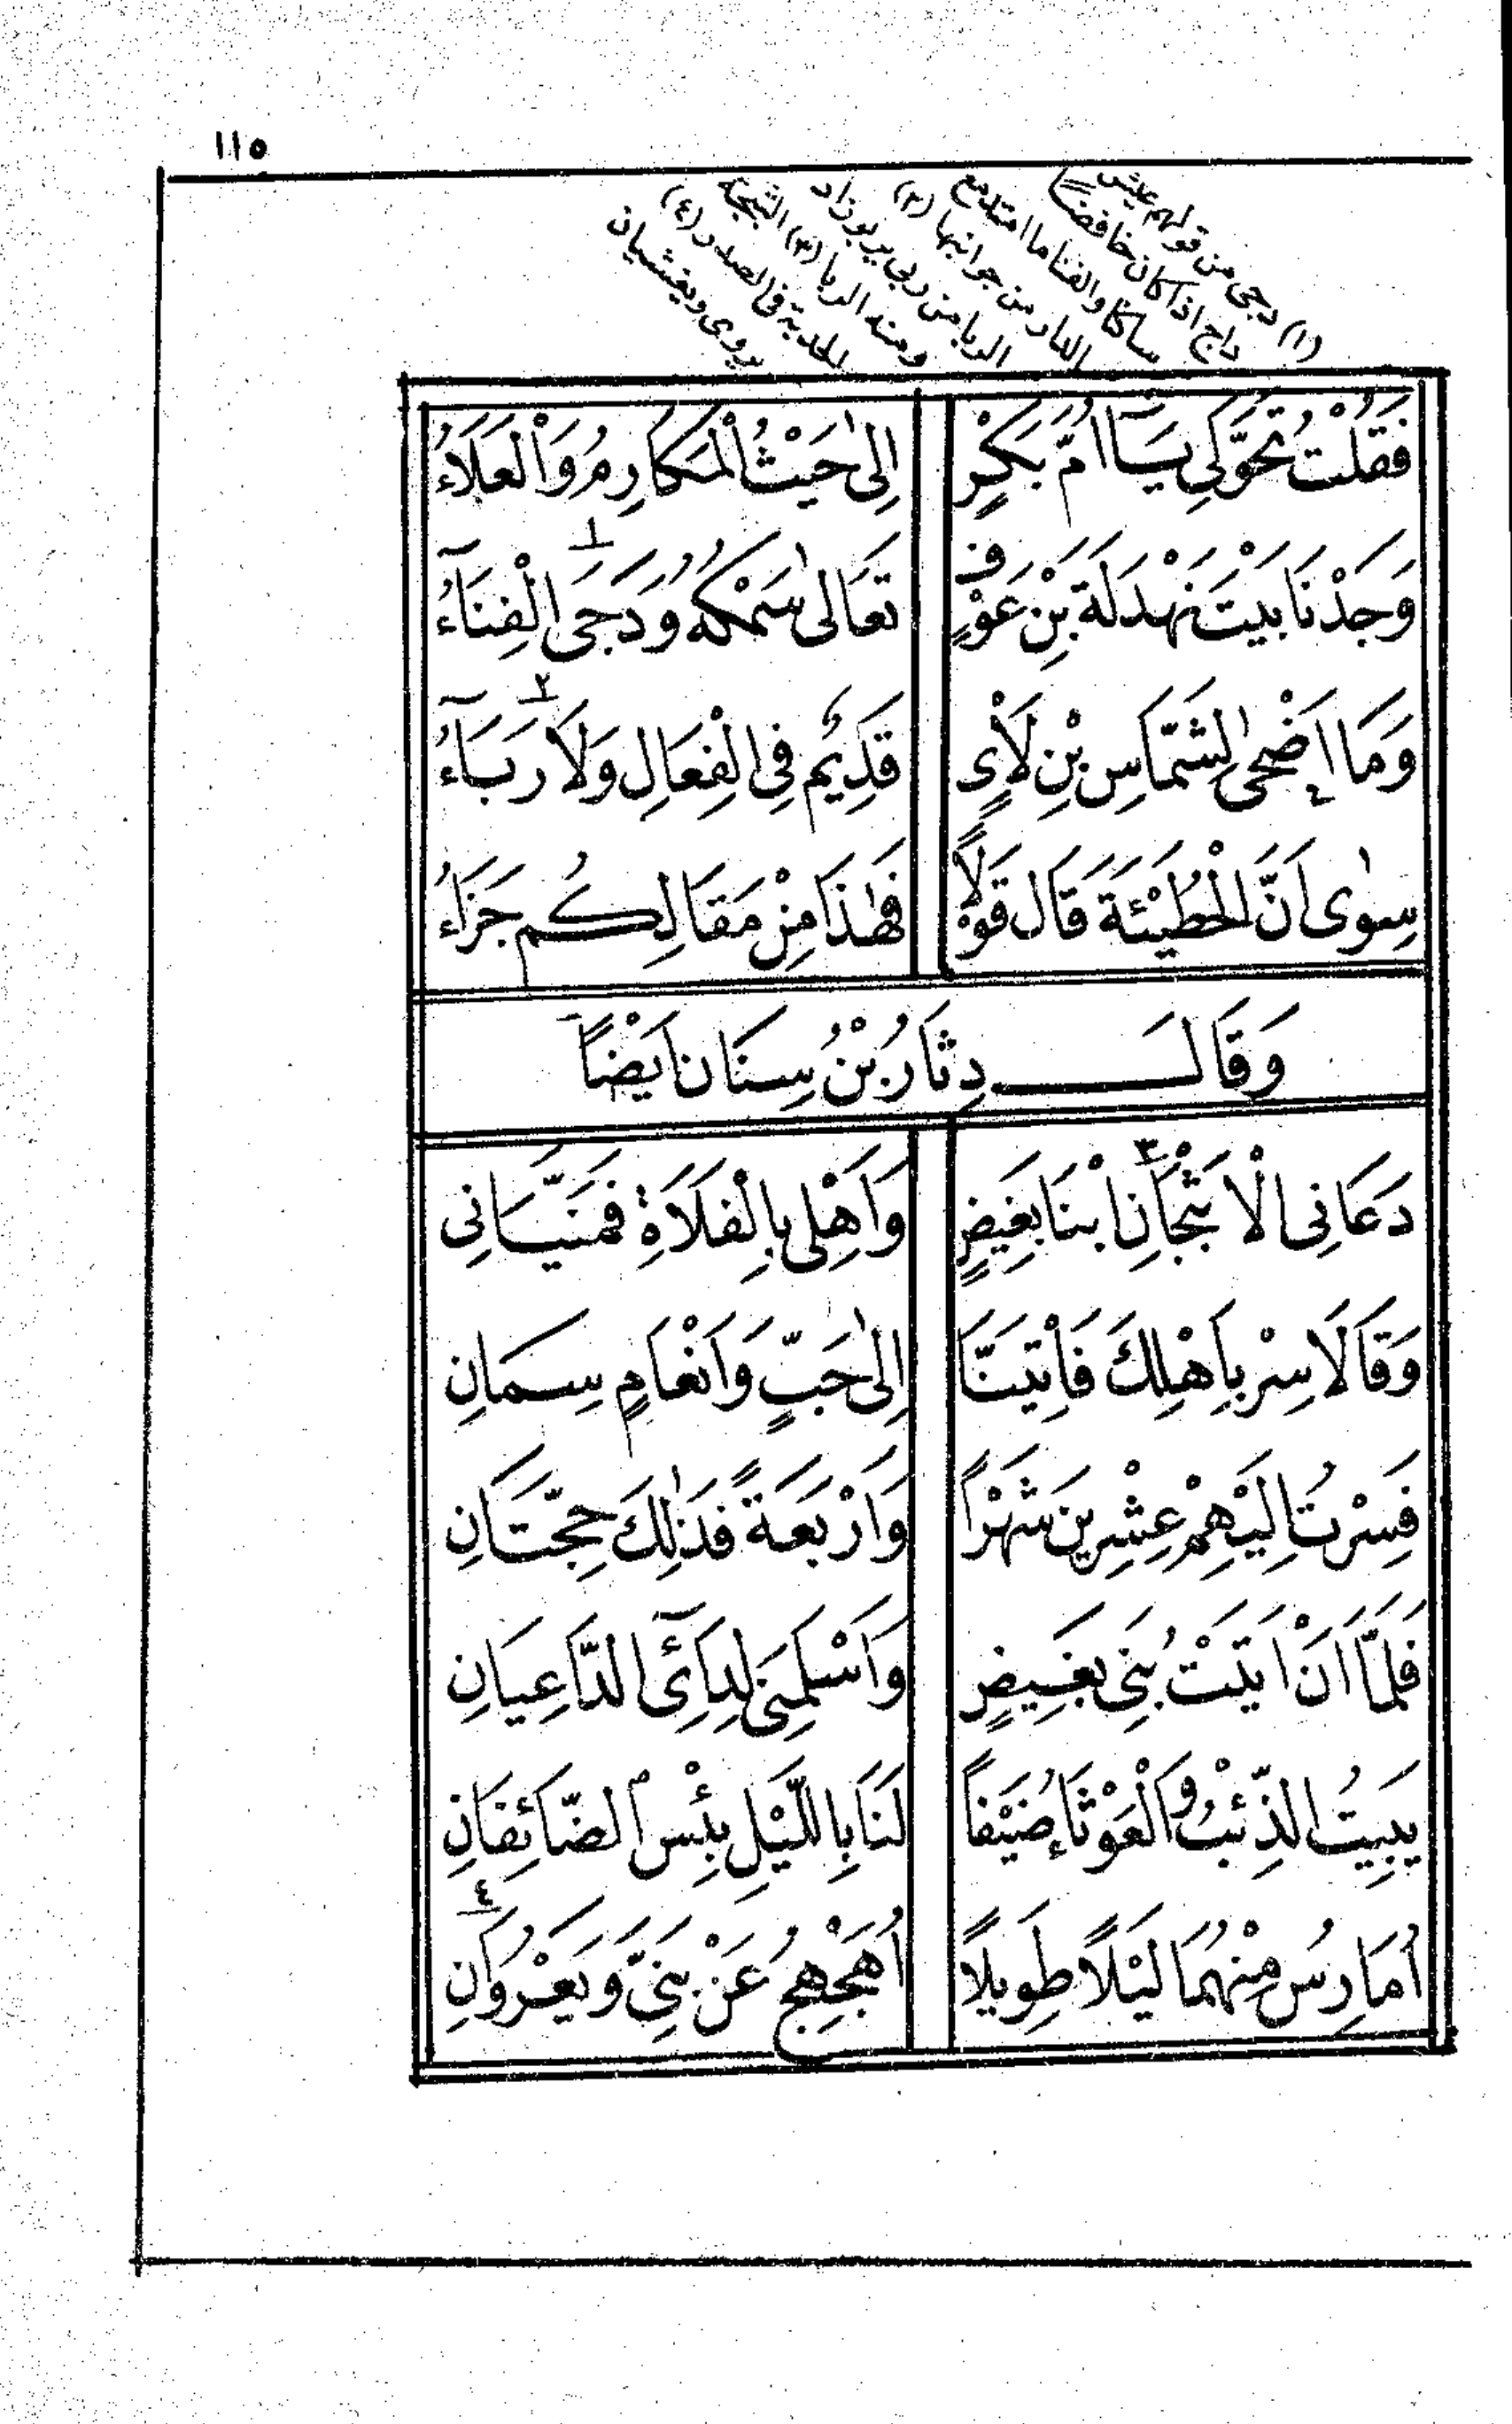 ١١٥
(١) دجى من قولهم عيش
داج اذا كان خافضا
ساكنا والفنا ما امتد مع
الدار من جوانبها (٢)
الربا من ربى يربو زاد
ومنه الربا (٣) الثبجة
الحدبة فى الصدر (٤)
يروى ويغشيان
فَقُلْتُ تَحَوَّلِى يَآ اُمَّ بَكْرٍ اِلىٰ حَيْثُ الْمَكَارِمُ وَالْعَلَاءُ
وَجَدْنَا بَيْتَ بَهْدَلَةَ بْنِ عَوْفٍ تَعَالىٰ سَمْكُهُ وَدَجَى الْفِنَآءُ
وَمَا اَضْحىٰ لِشَمَّاسِ بْنِ لَأْىٍ قَدِيمٌ فِى الْفِعَالِ وَلَا رَبَآءُ
سِوٰى اَنَّ الْحُطَيْئَةَ قَالَ قَوْلًا فَهٰذَا مِنْ مَقَالِكُم جَزَاءُ
وَقَالَ دِثَارُ بْنُ سِنَان اَيْضاً
دَعَانِى الْاَثْبَجَانِ ابْنَا بَغِيضٍ وَاَهْلِى بِالْفَلَاةِ فَمَنَّيَانِى
وَقَالَا سِرْ بِاَهْلِكَ فَأْتِيَنَّا اِلىٰ حَبٍّ وَاَنْعَامٍ سِمَانِ
فَسِرْتُ اِلَيْهِمْ عِشْرِينَ شَهْرًا وَاَرْبَعَةً فَذٰلِكَ حِجَّتَانِ
فَلَمَّا اَنْ اَتَيْتُ بَنِى بَغِيضٍ وَاَسْلَمَنِى لِدَآئِى الدَّاعِيَانِ
يَبِيتُ الذِّئْبُ وَالْعَوْثَاءُ ضَيْفاً لَنَا بِاللَّيْلِ بِئْسَ الضَّائِفَانِ
اُمَارِسُ مِنْهُمَا لَيْلًا طَوِيلًا اُهَجْهِجُ عَنْ بَنِىَّ وَيَعْرُوَانِ